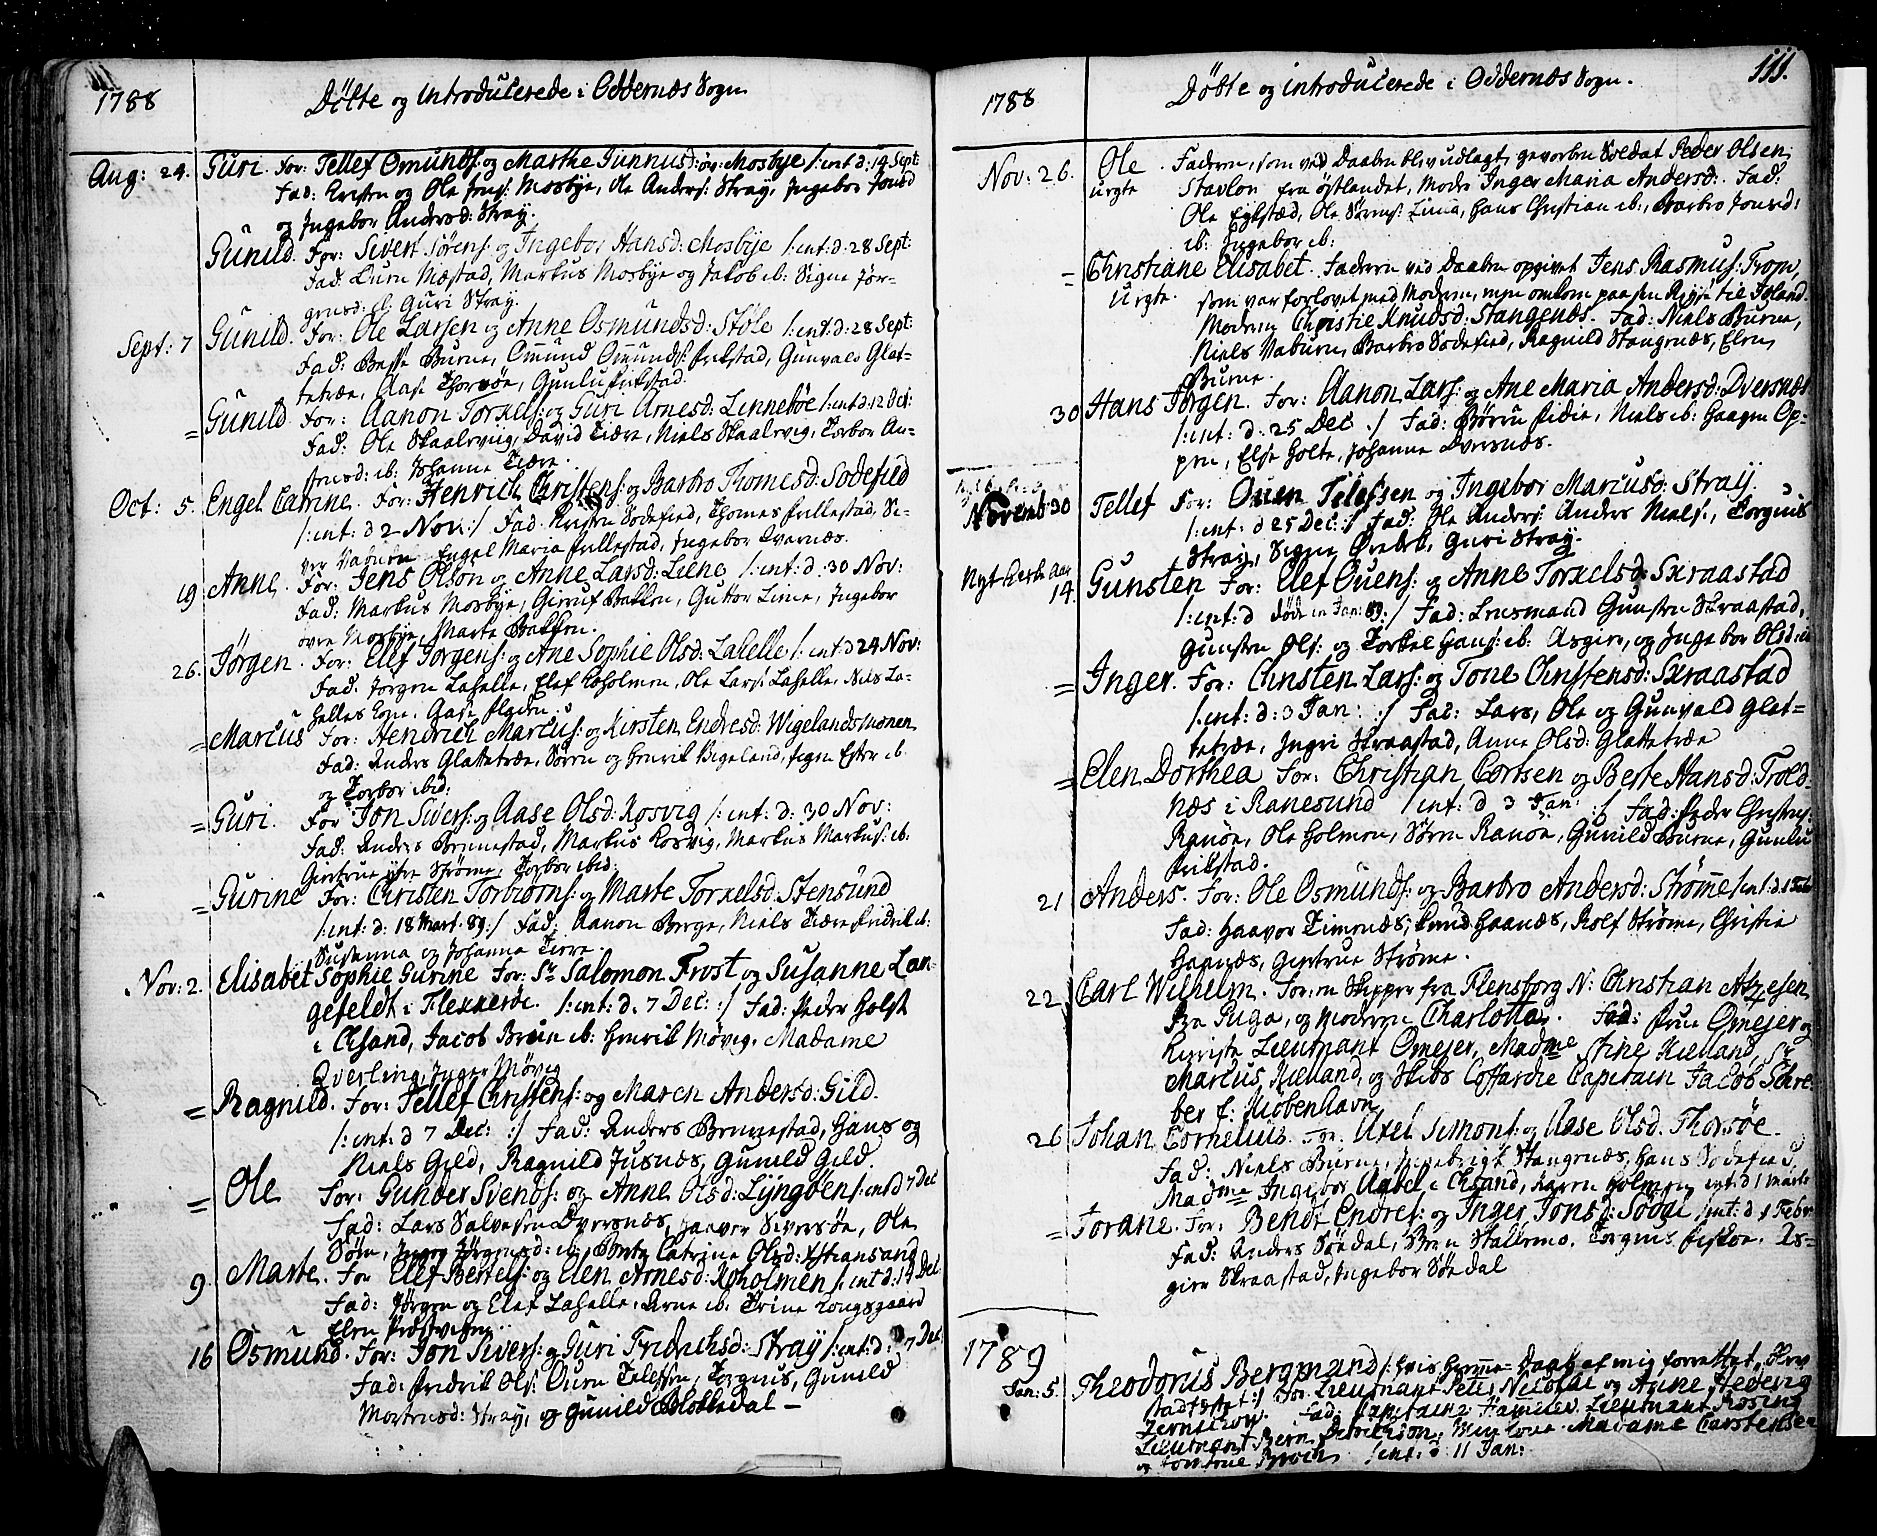 1788
Döbte og introducerede i Oddernæs Sogn
Aug: 24. Guri. For: Tellef Omunds: og Marthe Gunnusd: øv: Mosbye /: int: d: 14 Sept:
Fad: Kristen og Ole Jens: Mosbye, Ole Anders: Stray, Ingebor Jonsd
og Ingebor Andersd: Stray.
Gunild. For: Sivert Sörens: og Ingebor Hansd: Mosbye /: int: d: 28 Sept:
Fad: Mæstad, Markus Mosbye og Jakob ib: Signe Jör-
gensd: Guri Stray.
Sept: 7 Gunild. For: Ole Larsen og Anne Osmundsd: Støle /: int: d: 28 Sept:
Fad: Burne, Omund Omunds: Frikstad, Gunvald Glat-
tetræe, Aase Thorsöe, Gunlu Frikstad.
= Gunild. For: Aanon Torkels: og Guri Arnesd: Linnebøe /: int: d: 12 Oct:
Fad: Ole Skaalevig, David Tiære, Niels Skaalevig, Torbor An-
ib: Johanne Tiære.
Oct: 5. Engel Catrine. For: Henrich Christens: og Barbro Thomesd: Sodefied
/: int: d 2 Nov: :/ Fad: Kristen Sodefied, Thomas Frillestad, Si-
Engel Maria Frillestad, Ingebor Dvernæs.
19 Anne. For: Jens Olson og Anne Larsd: Liene /: int: d: 30 Nov:
Fad: Markus Mosbye, Bakken, Guttor Linie, Ingebor
övre Mosbye, Marte Bakken.
26. Jørgen. For: Elef Jorgens: og Ane Sophie Olsd: Lahelle /: int: d 24 Nov:
Fad: Jorgen Lahelle, Elef Koholmen, Ole Lars: Lahelle, Niels La-
helles Kone, Aase
= Marcus For: Hendrich Marcus: og Kirsten Endresd: Wigelandsmonen
Fad: Anders Glattetræe, Sören og Henrik Vigeland, ib:
og Torbor ibid:
= Guri. For Jon Sivers: og Aase Olsd: Kosvig /: int: d: 30 Nov:
Fad: Anders Bennestad, Markus Kosvig, Markus Markus: ib:
Giertrue ytre Strömme, Torbor ibid:
= Gurine For: Christen Torbiörns: og Marte Torkelsd: Stensund
/: int: d: 18 Mart: 89 :/ Fad: Aanon Berge, Niels Tiære Fridrik ib:
Susanna og Johanna Tiære.
Nov: 2. Elisabet Sophie Gurine For: Sr Salomon Frost og Susanne Lan-
gefeldt i Flekkeröe. /: int: d. 7 Dec: :/ Fad: Peder Holst
i Chsand, Jacob Bruin ib: Henrik Mövig. Madame
Qverling, Inger Mövig
= Ragnild. For: Tellef Christens: og Maren Andersd: Gild.
/: int: d 7 Dec: :/ Fad: Anders Bennestad, Hans og
Niels Gild, Ragnild Jusnæs, Gunild Gild.
= Ole For: Gunder Svends: og Anne Olsd: Lyngöen /: int: d 7 Dec
Fad: Lars Salvesen Dversnæs, Haaver Siversöe, Ole
Söm, Jörgensd: ib: Catrine Olsd: Xstiansand
9. Marte. For Elef Bertels: og Elen Arnesd: Koholmen /: int d: 14 Dec
Fad: Jörgen og Elef Lahelle, Arne ib: Trine Kongsgaard
Elen
16 Osmund. For: Jon Sivers: og Guri Fridrichsd: Stray /: int: d: 7 Dec
Fad: Fridrik Ols: Ouen Telefsen, Torgius, Gunild
Mortensd: Stray, og Gunild Blokkedal —
111.
1788
Döbte og introducerede i Oddernæs Sogn.
Nov: 26. Ole. Faderen, som ved Daaben blev udlagt, gevorben Soldat Peder Olsen
uegte Stavlon fra Östlandet, Modr. Inger Maria Andersd: Fad:
Ole Egkstæd, Ole Sörens: Liena, Hans Christian ib:, Barbro Jonsd:
ib: Ingebor ib:
= Christiane Elisabet. Faderen ved Daaben opgivet Jens Rasmus: Trom,
Uegte. som var forlovet med Moderen, men omkom paa sin Reyse til Island.
Moderen Christie Knudsd: Stangenæs. Fad: Niels Burne,
Niels Vaburn, Barbro Sodefied, Ragnild Stangenæs, Elen
Burne.
30 Hans Jörgen. For: Aanon Lars: og Ane Maria Andersd: Dversnæs
/: int: d: 25 Dec :/ Fad: Börru Fidie, Niels ib: Haagen Op-
pen, Else Holte, Johanna Dversnæs.
Novemb 30 Tellef For: Ouen Telefsen og Ingebor Marcusd: Stray.
/: int: d 25 Dec: :/ Fad: Ole Anders: Anders Niels:, Torgius
Stray, Signe Guri Stray.
Nyt Kirke Aar
14. Gunsten For: Elef Ouens: og Anne Torkelsd: Skraastad
/: int: d död in Jan: 89 :/ Fad: Lensmand Gunsten Skraastad,
Gunsten Ols: og Torkel Hans: ib: Asgier, og Ingebor Olsd: ib
= Inger. For: Christen Lars: og Tone Christensd: Skraastad
/: int: d: 3 Jan: :/ Fad: Lars, Ole og Gunvald Glat-
tetræe, Ingri Skraastad, Anne Olsd: Glattetræe
= Elen Dorthea For: Christian Cortsen og Berte Hansd: Trold-
næs i Ranesund /: int: d 3 Jan: :/ Fad: Peder Christens:
Ranöe, Ole Holmen, Sören Ranöe, Gunild Burne, Gunlu
Frikstad.
21 Anders. For: Ole Osmunds: og Barbro Andersd: Strömme /: int: d. 1 Febr
Fad: Haavor Timenæs, Knud Haanæs, Rolf Strömme, Christie
Haanæs, Giertrue Strömme.
22 Carl Wilhelm. For: en Skipper fra Flensborg N: Christian
fra og Moderen Charlotta. Fad: Omejer og
Lieutnant Omejer, Madme Stine Kielland, Sr
Marcus Kielland, og Skibs Coffardie Capitain Jacob Schre-
ber f: Kiöbenhavn
26 Johan Cornelius. For: Axel Simons: og Aase Olsd: Thorsöe.
Fad: Niels Burne, Ingebrigt Stangenæs, Hans Sodefied,
Madme Ingebor Aabel i Chsand, Karen Holmen int: d 1 Marti
= Torane. For: Bendt Endres: og Inger Jonsd: Södal /: int: d 1 Febr
Fad: Anders Södal, Stallemo, Torgius As-
gier Skraastad, Ingebor Södal
1789
Jan: 5. Theodorus Bergmand /: hvis Hjemme-Daab af mig forrettet, blev
stadfæstet :/ For: Lieutnant Peter Nicolai og Anne Hedevig
Fad: Capitaine Lieutnant Rosing
Lieutnant Madame Carstensen
og Broch /: int: d 11 Jan: